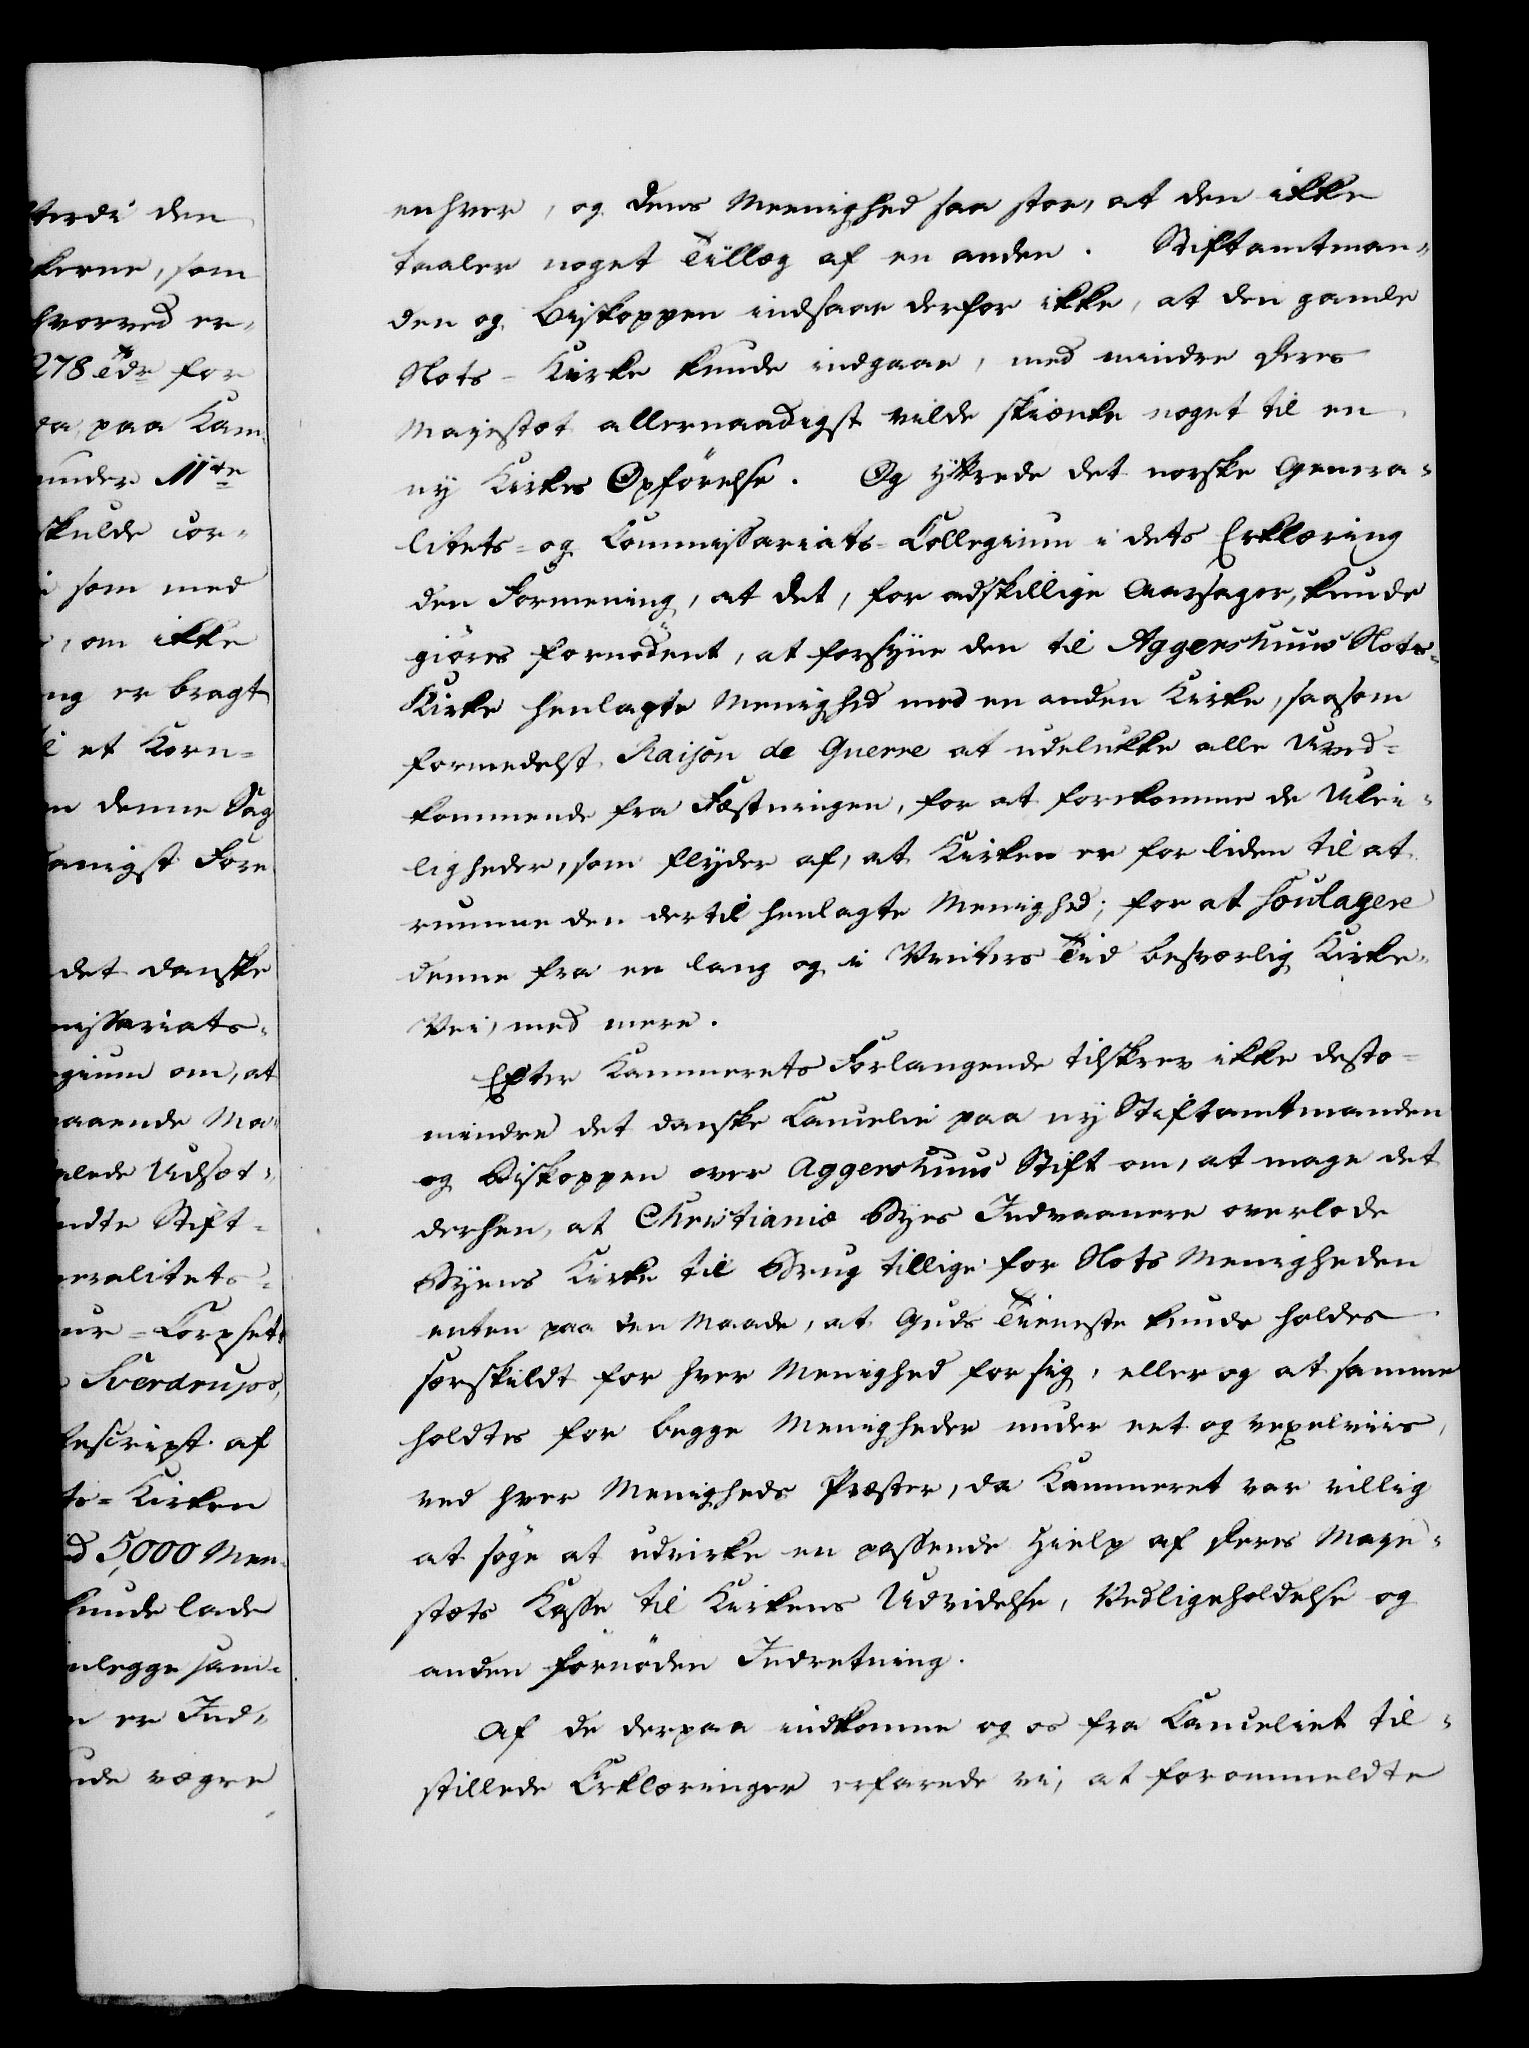 terdi den
kerne, som
hvorved er-
278 Tdr for
ra paa Kam-
under 11te
skulde cor-
i som med
r, om ikke
ng er bragt
l et Korn-
n denne Sag
danigst Fore
det danske
missariats-
gium om, at
gaaende Ma-
lede Udsæt-
ndte Stift-
eralitets-
ur-Corpset
Sverdrups,
Rescript af
ts-Kirken
d 5,000 Men-
kunde lade
nlegge sam-
n er Ind-
de vægre
enhver, og dens Meenighed saa stor, at den ikke
taaler noget Tillæg af en anden. Stiftamtman-
den og Biskoppen indsaae derfor ikke, at den gamle
Slots-Kirke kunde indgaae, med mindre Deres
Majestæt allernaadigst vilde skiænke noget til en
ny Kirkes Opførelse. Og yttrede det norske Genera-
litets- og Commissariats-Collegium i dets Erklæring
den Formening, at det, for adskillige Aarsager, kunde
giøres fornødent, at forsyne den til Aggershuus Slots-
Kirke henlagte Menighed med en anden Kirke, saasom
formedelst Raison de Guerre at udelukke alle Uved-
kommende fra Fæstningen, for at forekomme de Ulei-
ligheder, som flyder af, at Kirken er for liden til at
rumme den dertil henlagte Menighed; for at soulagere
denne fra en lang og i Vinters Tid besværlig Kirke-
Vei, med mere.
Efter Kammerets Forlangende tilskrev ikke desto-
mindre det danske Cancelie paa ny Stiftamtmanden
og Biskoppen over Aggershuus Stift om, at mage det
derhen, at Christiania Byes Indvaanere overlode
Byens Kirke til Brug tillige for Slots Menigheden
enten paa den Maade, at Guds Tieneste kunde holdes
særskildt for hver Menighed for sig, eller og at samme
holdtes for begge Menigheder under eet og vexelviis,
ved hver Menigheds Præster, da Kammeret var villig
at søge at udvirke en passende Hielp af Deres Maje-
stæts Kasse til Kirkens Udvidelse, Vedligeholdelse og
anden fornøden Indretning.
Af de derpaa indkomne og os fra Cancelliet til-
stillede Erklæringer erfarede vi, at forommeldte